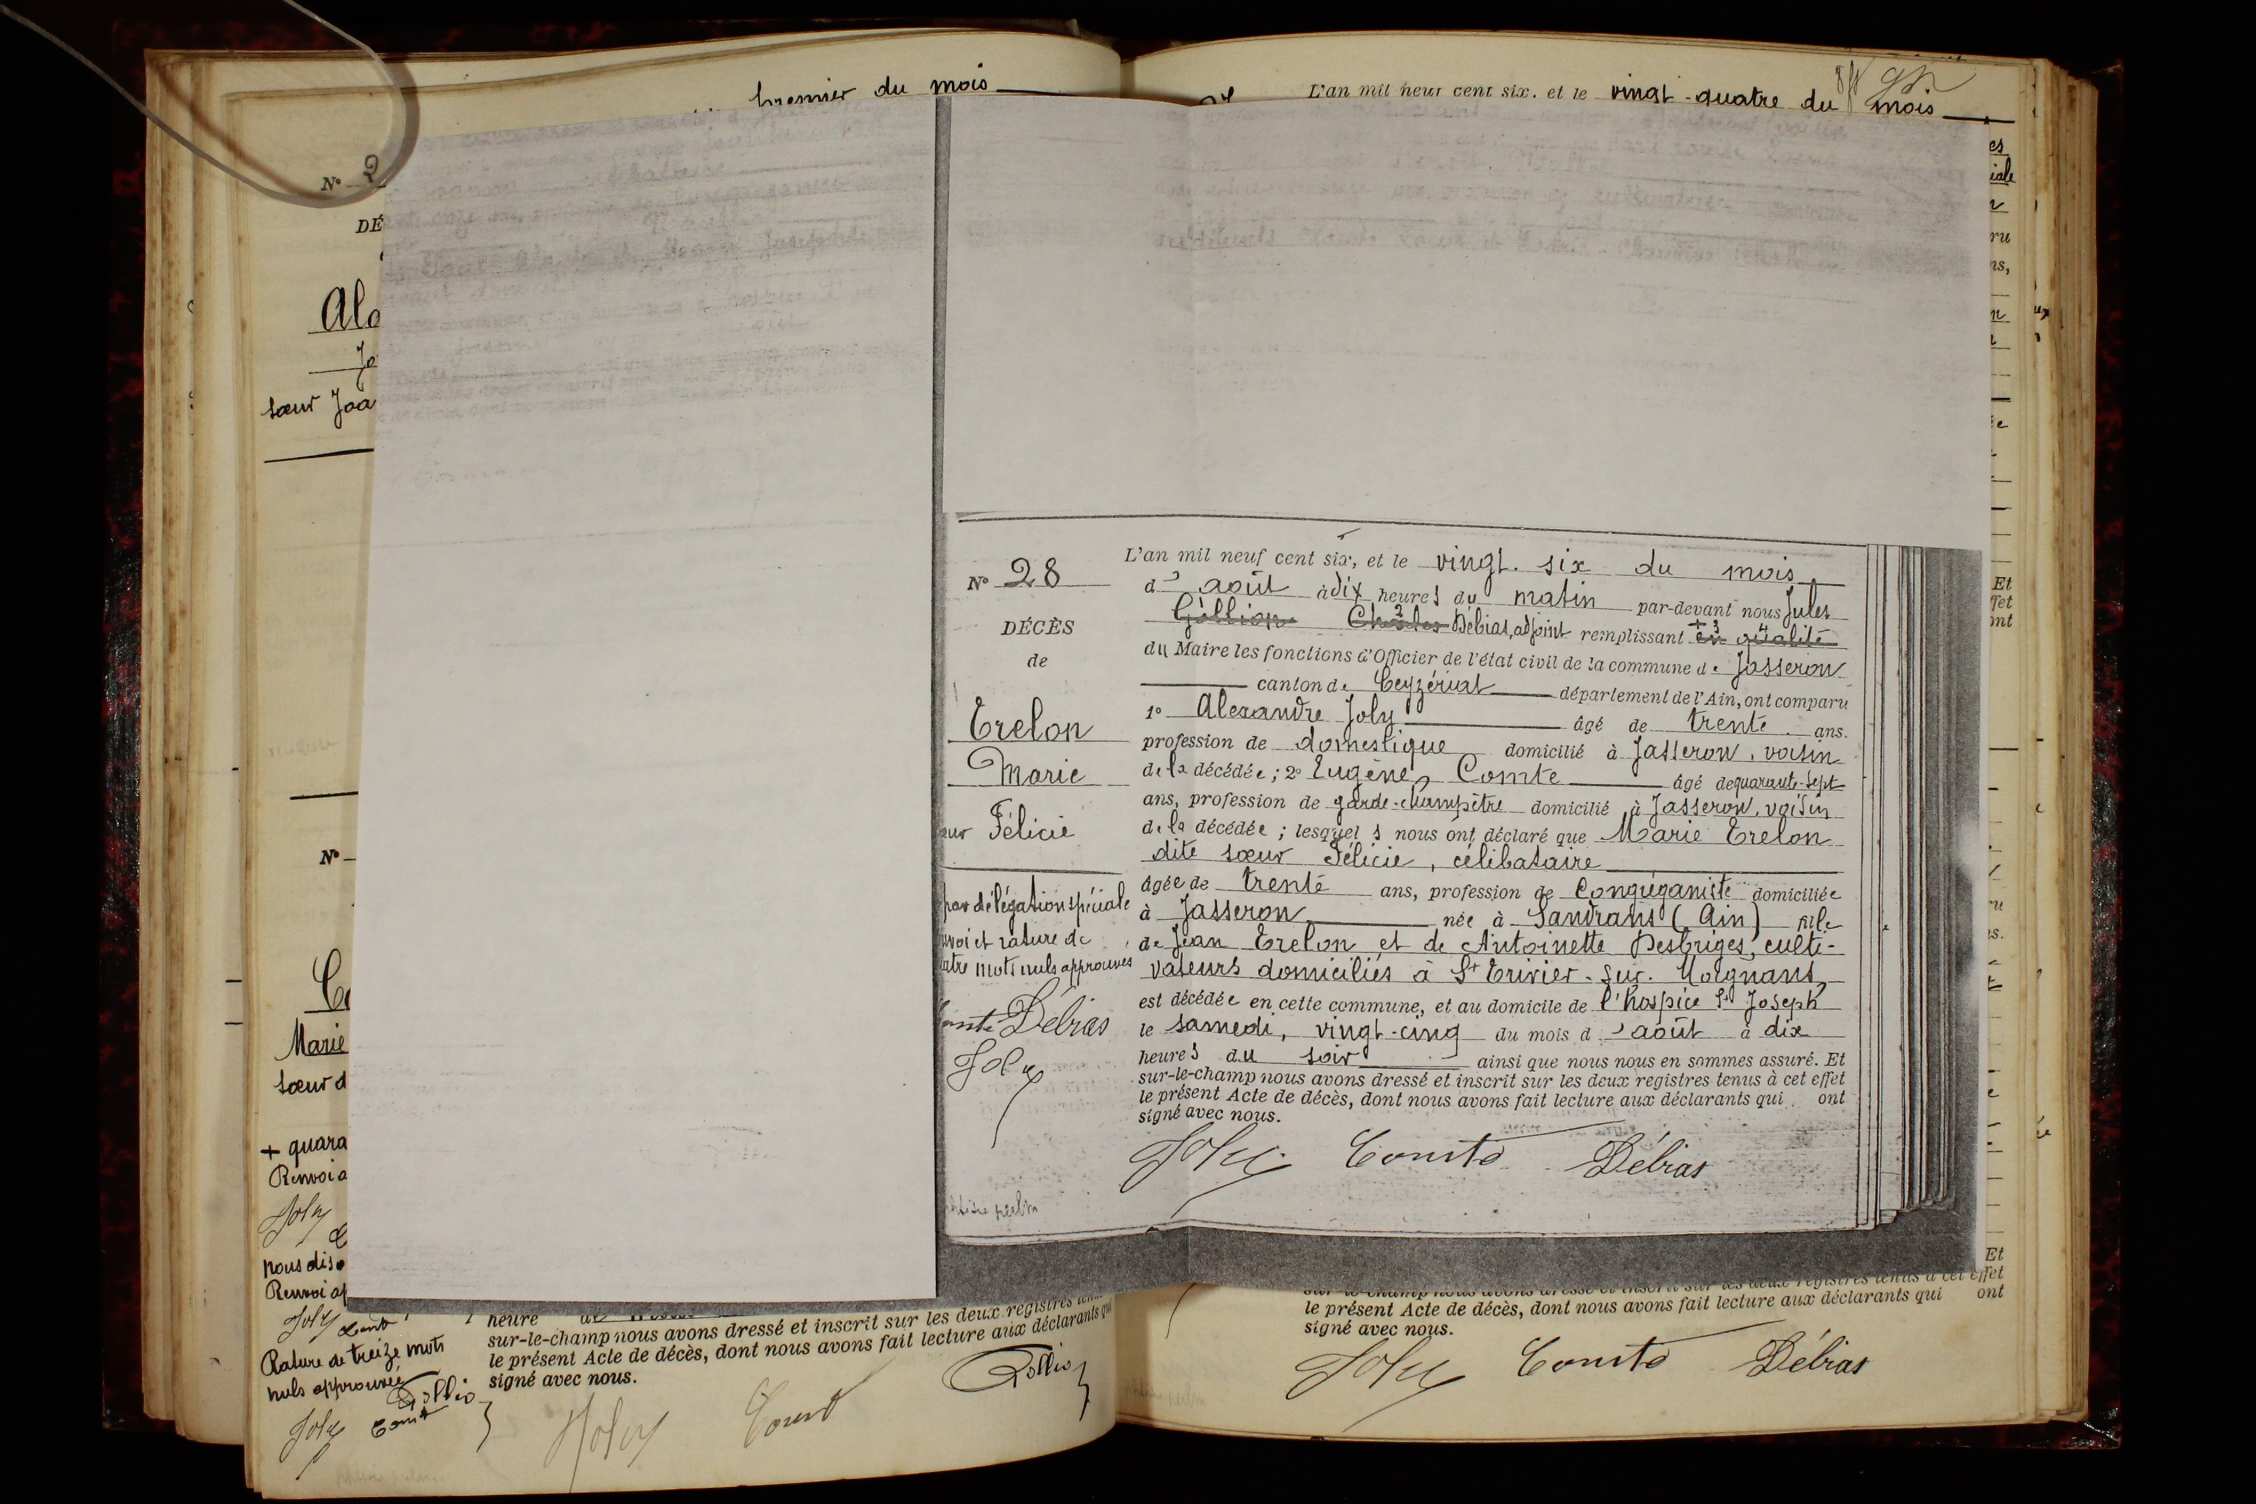 premier du mois
N° 2
DÉ
Alo
Jo
sœur Joa
N°
Co
Marie
sœur d
+ quara
Renvoi a
Joly
nous dis
Renvoi ap
Joly Comte
Rature de treize mots
nuls approuvée
Joly Comte
heure
sur-le-champ nous avons dressé et inscrit sur les deux registres
le présent Acte de décès, dont nous avons fait lecture aux déclarants qui
signé avec nous.
Joly Comte
L'an mil neuf cent six, et le vingt-quatre du mois
N° 28
DÉCÈS
de
Trelon
Marie
Félicie
par délégation spéciale
voi et rature de
atre mots nuls approuvés
Comte Débias
Joly
L'an mil neuf cent six, et le vingt-six du mois
d'août à dix heures du matin par-devant nous Jules
Gollion Charles Débias, adjoint remplissant + en qualité
du Maire les fonctions d'Officier de l'état civil de la commune de Jasseron
canton de Ceyzériat département de l'Ain, ont comparu
1° Alexandre Joly âgé de trente ans.
profession de domestique domicilié à Jasseron, voisin
de la décédée; 2° Eugène Comte âgé de quarante-sept
ans, profession de garde-champêtre domicilié à Jasseron, voisin
de la décédée; lesquels nous ont déclaré que Marie Trelon
dite sœur Félicie, célibataire
âgée de trente ans, profession de Congréganiste domiciliée
à Jasseron née à Sandrans (Ain) fille
de Jean Trelon et de Antoinette Desbriges, culti-
vateurs domiciliés à St Trivier-sur-Moignans,
est décédée en cette commune, et au domicile de l'hospice St Joseph
le samedi, vingt-cinq du mois d'août à dix
heures du soir ainsi que nous nous en sommes assuré. Et
sur-le-champ nous avons dressé et inscrit sur les deux registres tenus à cet effet
le présent Acte de décès, dont nous avons fait lecture aux déclarants qui ont
signé avec nous.
Joly Comte Débias
Et
sur-le-champ nous avons dressé et inscrit sur les deux registres tenus à cet effet
le présent Acte de décès, dont nous avons fait lecture aux déclarants qui ont
signé avec nous.
Joly Comte Débias